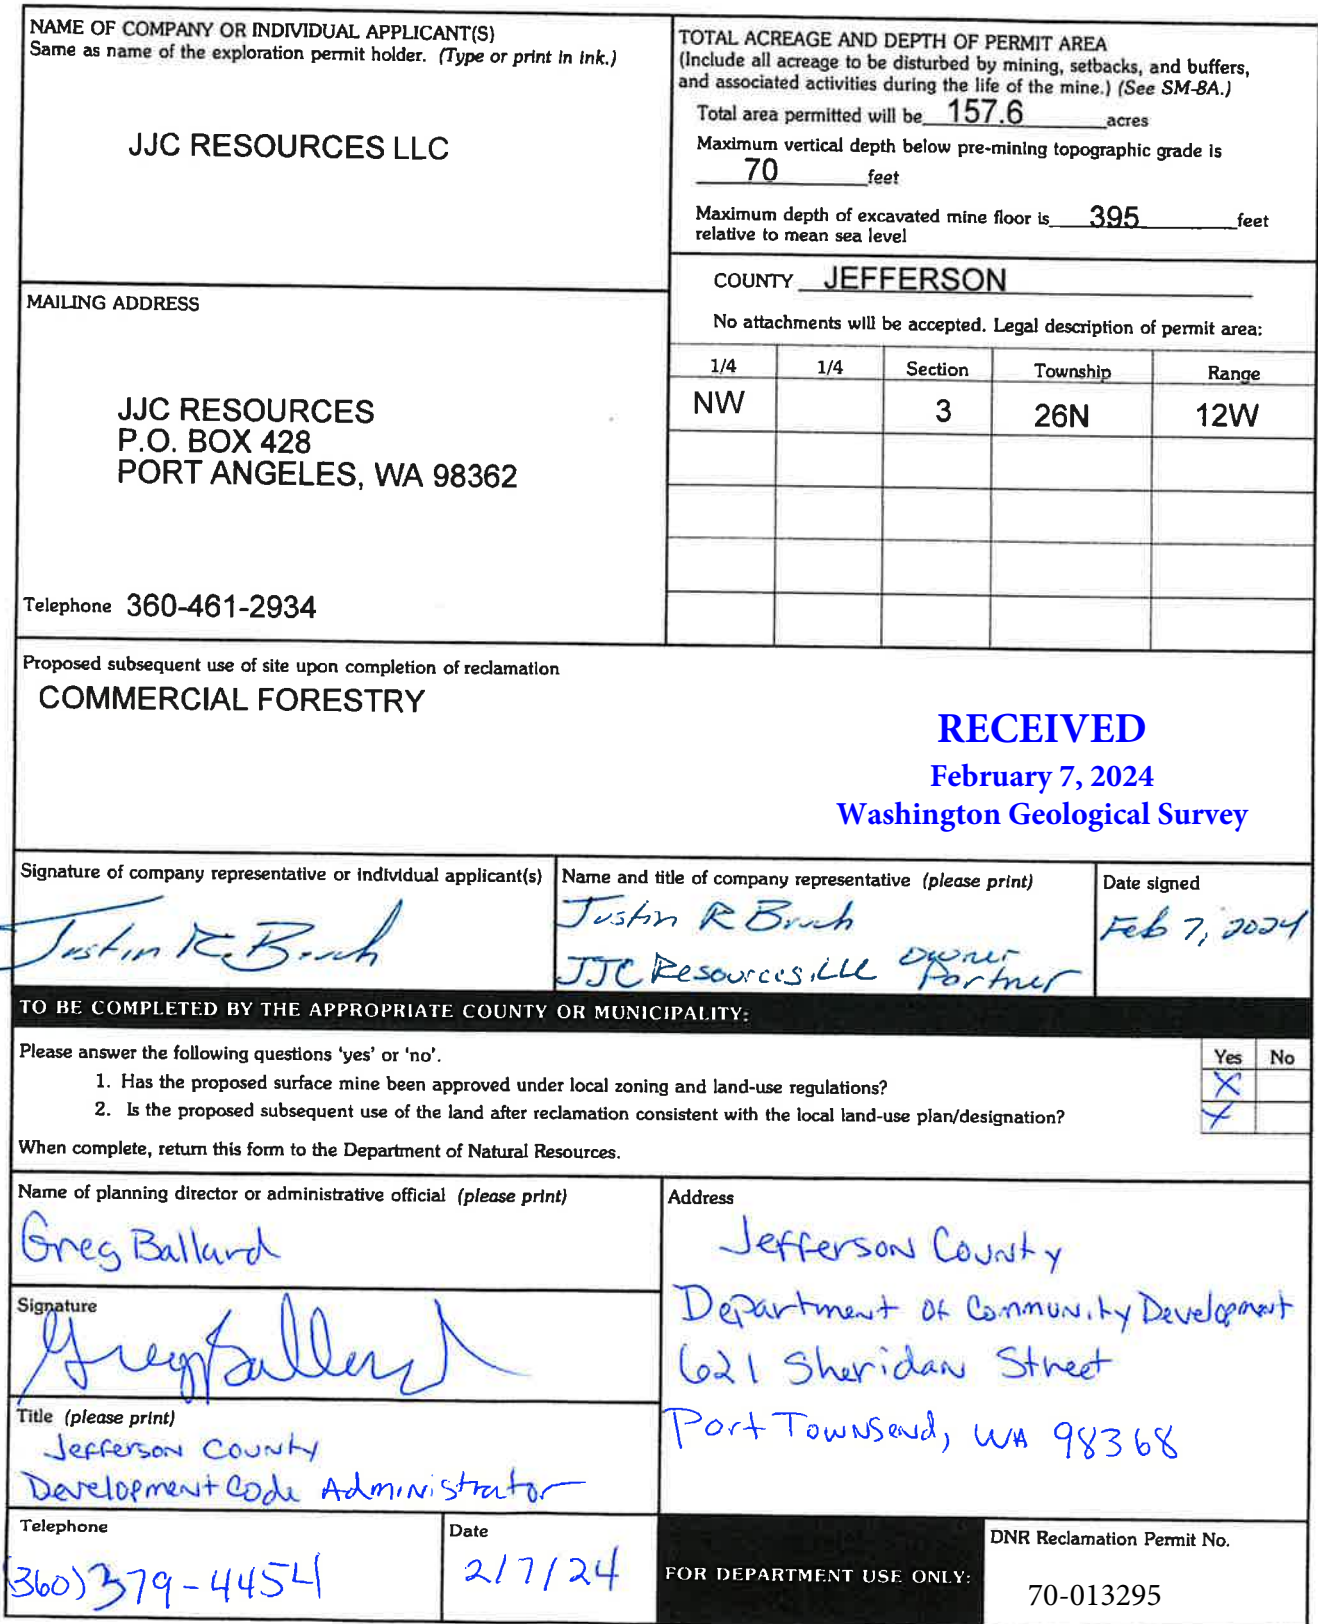 NAME OF COMPANY OR INDIVIDUAL APPLICANT(S)
Same as name of the exploration permit holder. (Type or print in ink.)
JJC RESOURCES LLC
TOTAL ACREAGE AND DEPTH OF PERMIT AREA
(Include all acreage to be disturbed by mining, setbacks, and buffers,
and associated activities during the life of the mine.) (See SM-8A.)
Total area permitted will be 157.6 acres
Maximum vertical depth below pre-mining topographic grade is
70 feet
Maximum depth of excavated mine floor is 395 feet
relative to mean sea level
MAILING ADDRESS
JJC RESOURCES
P.O. BOX 428
PORT ANGELES, WA 98362
Telephone 360-461-2934
COUNTY JEFFERSON
No attachments will be accepted. Legal description of permit area:
1/4 1/4 Section Township Range
NW 3 26N 12W
Proposed subsequent use of site upon completion of reclamation
COMMERCIAL FORESTRY
RECEIVED
February 7, 2024
Washington Geological Survey
Signature of company representative or individual applicant(s)
Justin R. Bruch
Name and title of company representative (please print)
Justin R Bruch
JJC Resources, LLC Owner
Partner
Date signed
Feb 7, 2024
TO BE COMPLETED BY THE APPROPRIATE COUNTY OR MUNICIPALITY:
Please answer the following questions 'yes' or 'no'.
Yes No
1. Has the proposed surface mine been approved under local zoning and land-use regulations? X
2. Is the proposed subsequent use of the land after reclamation consistent with the local land-use plan/designation? X
When complete, return this form to the Department of Natural Resources.
Name of planning director or administrative official (please print)
Greg Ballard
Signature
Greg Ballard
Title (please print)
Jefferson County
Development Code Administrator
Address
Jefferson County
Department of Community Development
621 Sheridan Street
Port Townsend, WA 98368
Telephone
(360) 379-4454
Date
2/7/24
FOR DEPARTMENT USE ONLY:
DNR Reclamation Permit No.
70-013295